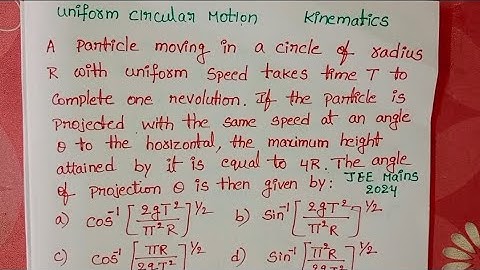 Uniform Circular Motion Kinematics
A Particle moving in a circle of radius
R with uniform speed takes time T to
Complete one revolution. If the particle is
Projected with the same speed at an angle
θ to the horizontal, the maximum height
attained by it is equal to 4R. The angle
of projection θ is then given by: JEE Mains 2024
a) Cos⁻¹ [2gT²/π²R]^1/2 b) Sin⁻¹ [2gT²/π²R]^1/2
c) Cos⁻¹ [πR/2gT²]^1/2 d) Sin⁻¹ [π²R/2gT²]^1/2